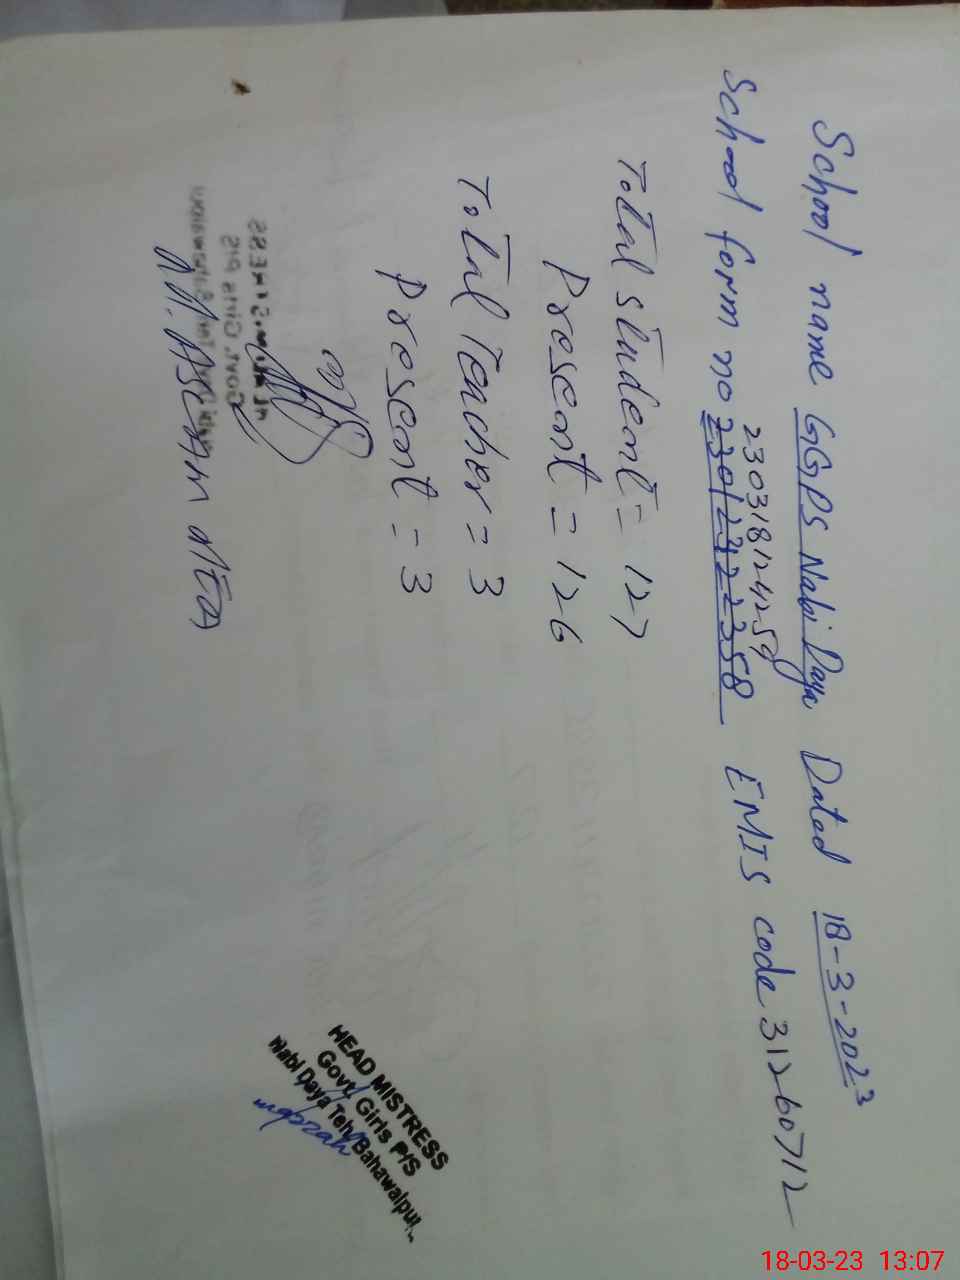 School name GGPS Nabi Daya Dated 18-3-2023
230318124259
School form no 23012422358 EMIS code 31260712
Total student = 127
Present = 126
Total Teacher = 3
Present = 3
M. ASLAM MEA
HEAD MISTRESS
Govt. Girls P/S
Nabi Daya Teh. Bahawalpur.
18-03-23 13:07